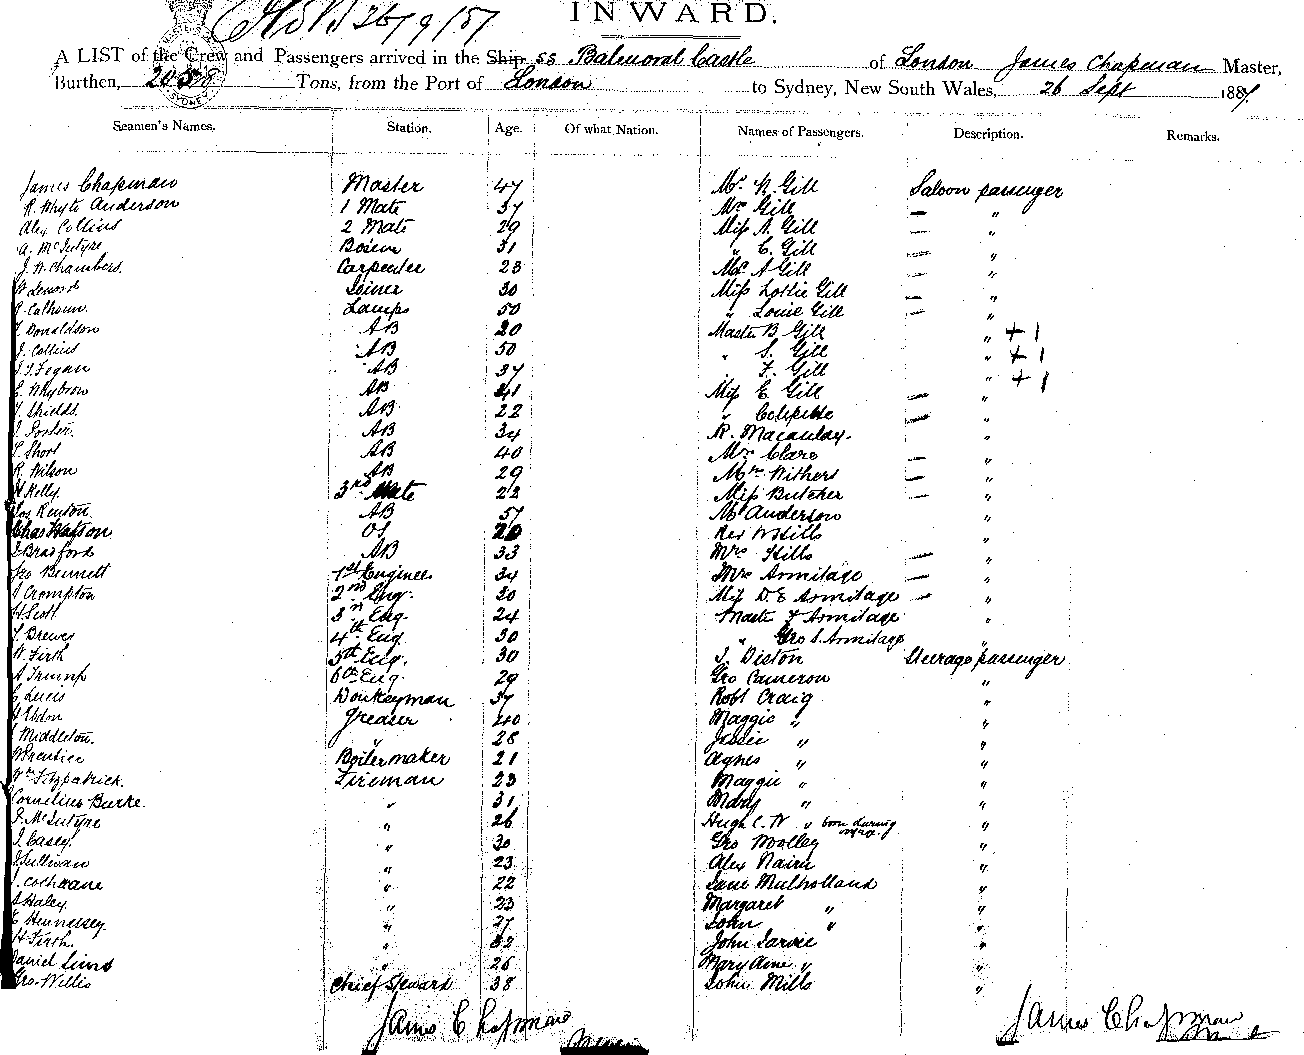 INWARD.
26/9/87
A LIST of the Crew and Passengers arrived in the Ship SS Balmoral Castle of London James Chapman Master,
Burthen, Tons, from the Port of London to Sydney, New South Wales, 26 Sept 1887
Seamen's Names. Station. Age. Of what Nation. Names of Passengers. Description. Remarks.
James Chapman Master 47 Mr. N. Gill Saloon passenger
R. Whyte Anderson 1 Mate 37 Mrs Gill — "
Alex Collins 2 Mate 29 Miss A. Gill — "
A. McIntyre Bosun 31 " C. Gill — "
J. W. Chambers. Carpenter 23 A Gill — "
Joiner 30 Miss Lottie Gill — "
Calhoun. Lamps 50 " Louie Gill — "
Donaldson AB 20 Master B Gill " + 1
J. Collins AB 50 " S. Gill " + 1
Fegan AB 37 " F. Gill " + 1
E. Whybrow AB 41 Miss E. Gill — "
Shields. AB 22 " — "
Porter. AB 34 R. Macaulay. "
Short AB 40 Mrs Clare — "
R. Wilson AB 29 Mrs Withers — "
H Kelly. 3rd Mate 22 Miss Butcher — "
Jos Renton. AB 57 Mr Anderson "
Chas Watson OS 20 Rev W Hills "
Bradford AB 33 Mrs Hills — "
Geo Burnett 1st Engineer 34 Mrs Armitage — "
Crompton 2nd Eng. 30 Miss D. E Armitage — "
H Scott 3rd Eng. 24 Maste F Armitage "
Brewer 4th Eng 30 " Geo S. Armitage "
W. Firth 5th Eng. 30 J. Diston Steerage passenger
A Trump 6th Eng. 29 Geo Cameron "
Lucis Donkeyman 37 Robt Craig "
Greaser 40 Maggie " "
Middleton. " 28 Jessie " "
Prentice Boilermaker 21 Agnes " "
Wm Fitzpatrick. Fireman 23 Maggie " "
Cornelius Burke. " 31 Mary " "
McIntyre " 26 Hugh C. W " born during voyage. "
J. Casey. " 30 Geo Molley "
Sullivan " 23 Alex Nairn "
Cochrane " 22 Jane Mulholland "
Haley " 23 Margaret " "
Hennessey. " 27 John " "
H Firth. " 32 John Jarvie "
Daniel " 26 Mary Ann " "
Geo. Willis Chief Steward 38 John Mills "
James Chapman James Chapman